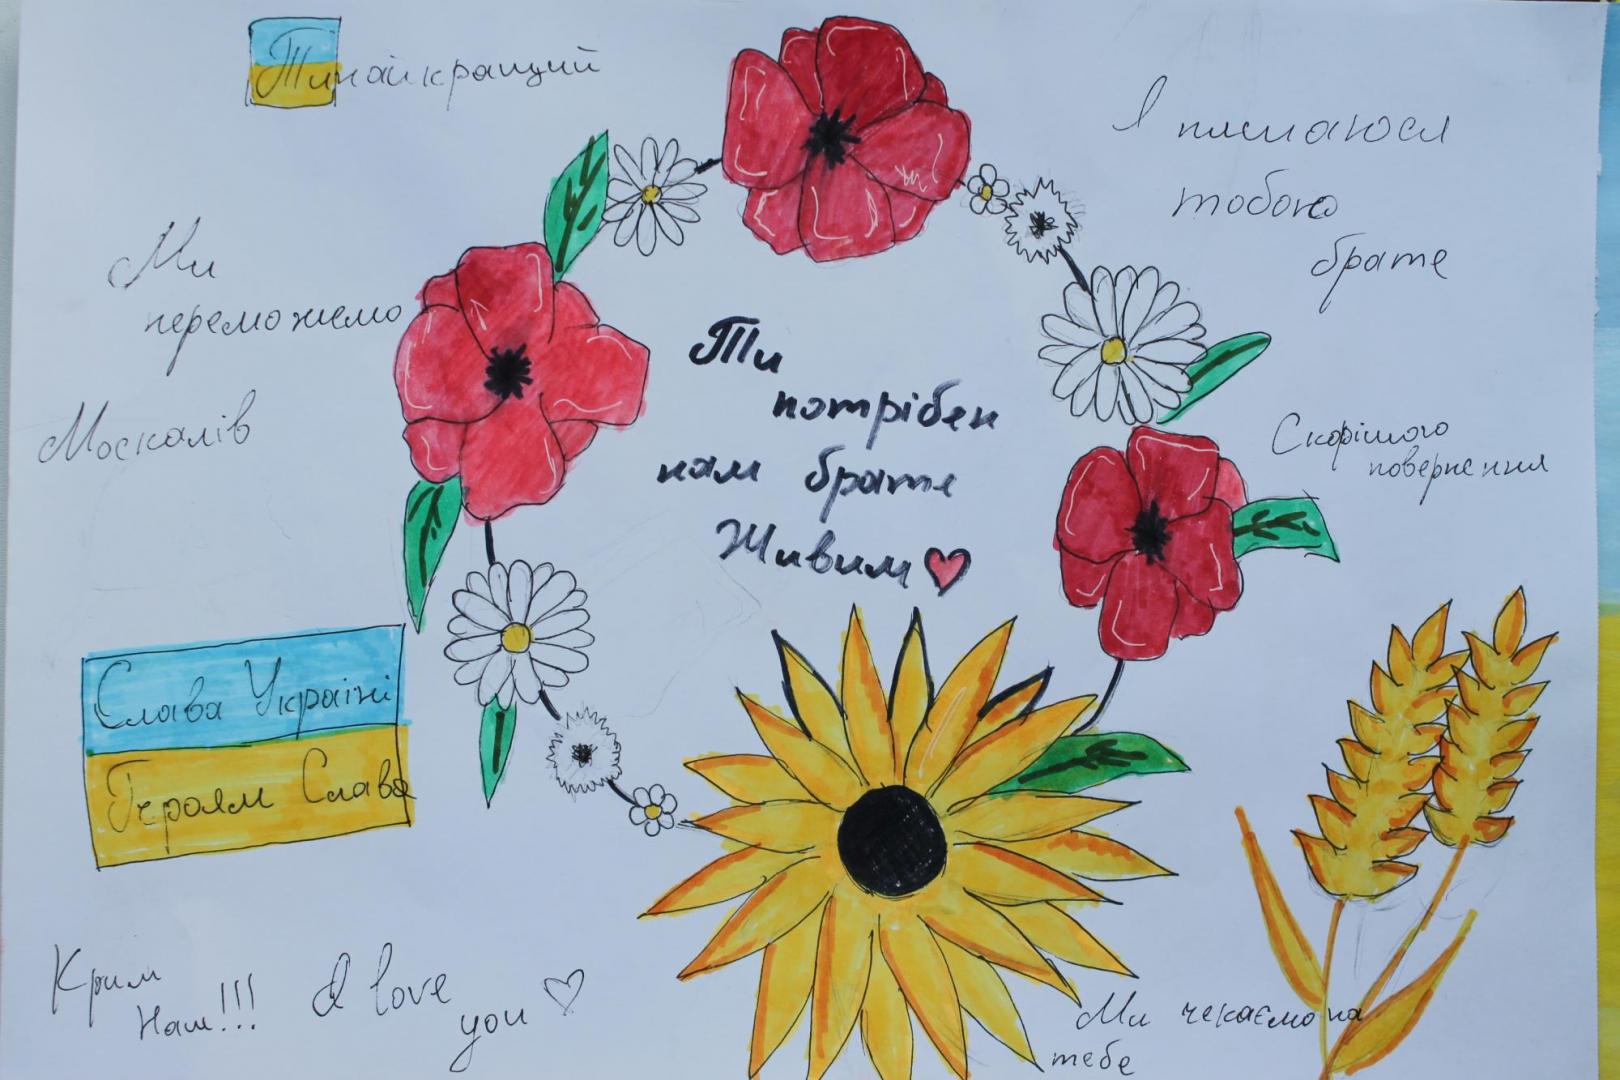 Ти найкращий
Я пишаюся
тобою
брате
Ми
переможемо
Москалів
Ти
потрібен
нам брате
Живим
Скорішого
повернення
Слава Україні
Героям Слава
Крим
Наш!!!
I love
you
Ми чекаємо на
тебе